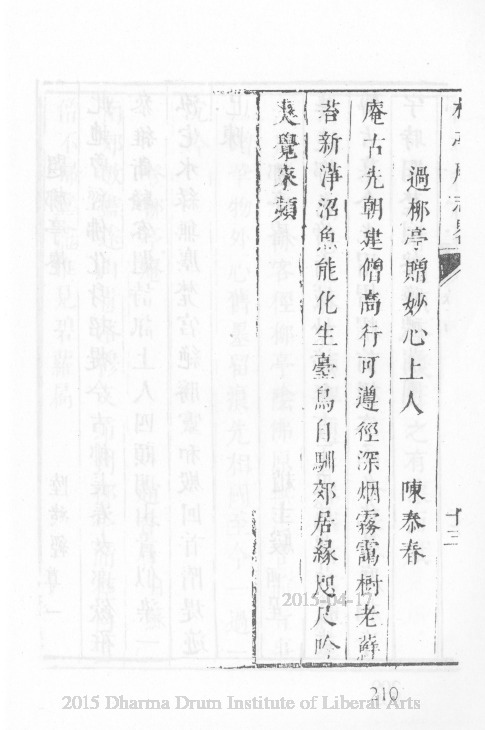 過柳亭贈妙心上人 陳泰春
庵古先朝建僧高行可遵徑深烟霧靄樹老蘚
苔新澤沼魚能化生臺鳥自馴郊居緣咫尺吟
爽覺來頻
十三
2015-04-17
210
2015 Dharma Drum Institute of Liberal Arts